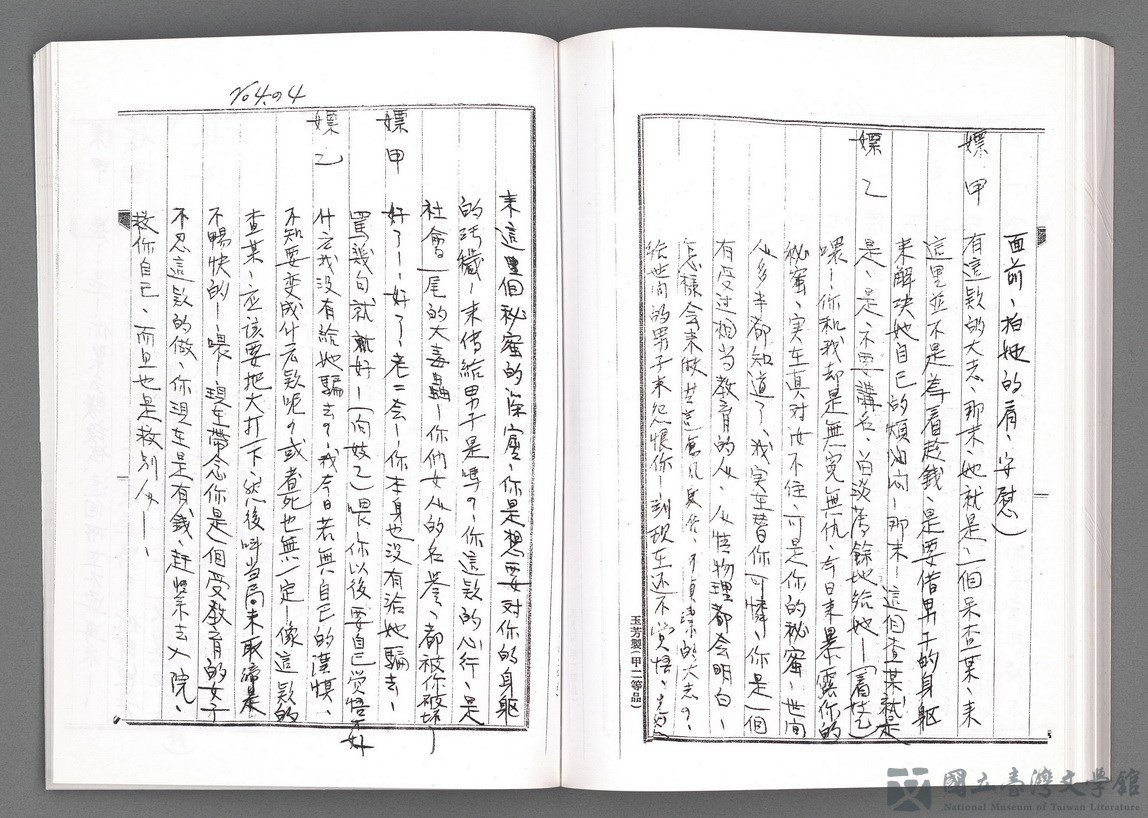 面前、拍她的肩、安慰)
嫖甲 有這款的大志、那末、她就是、一個呆查某、末
這里並不是為着趁錢、是要借男子的身軀
來解決她自己的煩悶、那末—這個查某就是
嫖乙 是、是、不要講名、留淡薄餘地給她—(看妓乙)
喂—你和我却是無冤無仇、今日來暴露你的
秘蜜、实在真对汝不住、可是你的秘蜜、世間
人多半都知道了、我实在替你可憐、你是一個
有受过相当教育的人、人情物理都会明白—
怎樣会來做
給世間的男子來怨恨你—到現在还不覚悟、
玉芳製(甲二等品)
No 4.の4
來這里個秘蜜的深窟、你是想要对你的身軀
的污穢—來传給男子是嗎?你這款的心行、是
社會一尾的大毒虫—你們女人的名誉、都被你破坏了
嫖甲 好了——好了、老二会—你本身也没有給她騙去—
罵幾句就就好—(向妓乙)喂—你以後要自己覚悟、不好
嫖乙 什么我没有給她騙去?我今日若無自己的謹慎、
不知要变成什么款呢?或者死也無一定—像這款的
查某、应該要把大打一下、然後叫当局來取締是
不暢快的—喂—現在帶念你是一個受教育的女子
不忍這款的做、你現在是有錢、赶緊去入院、
救你自己、而且也是救别人—、
國立臺灣文學館
National Museum of Taiwan Literature